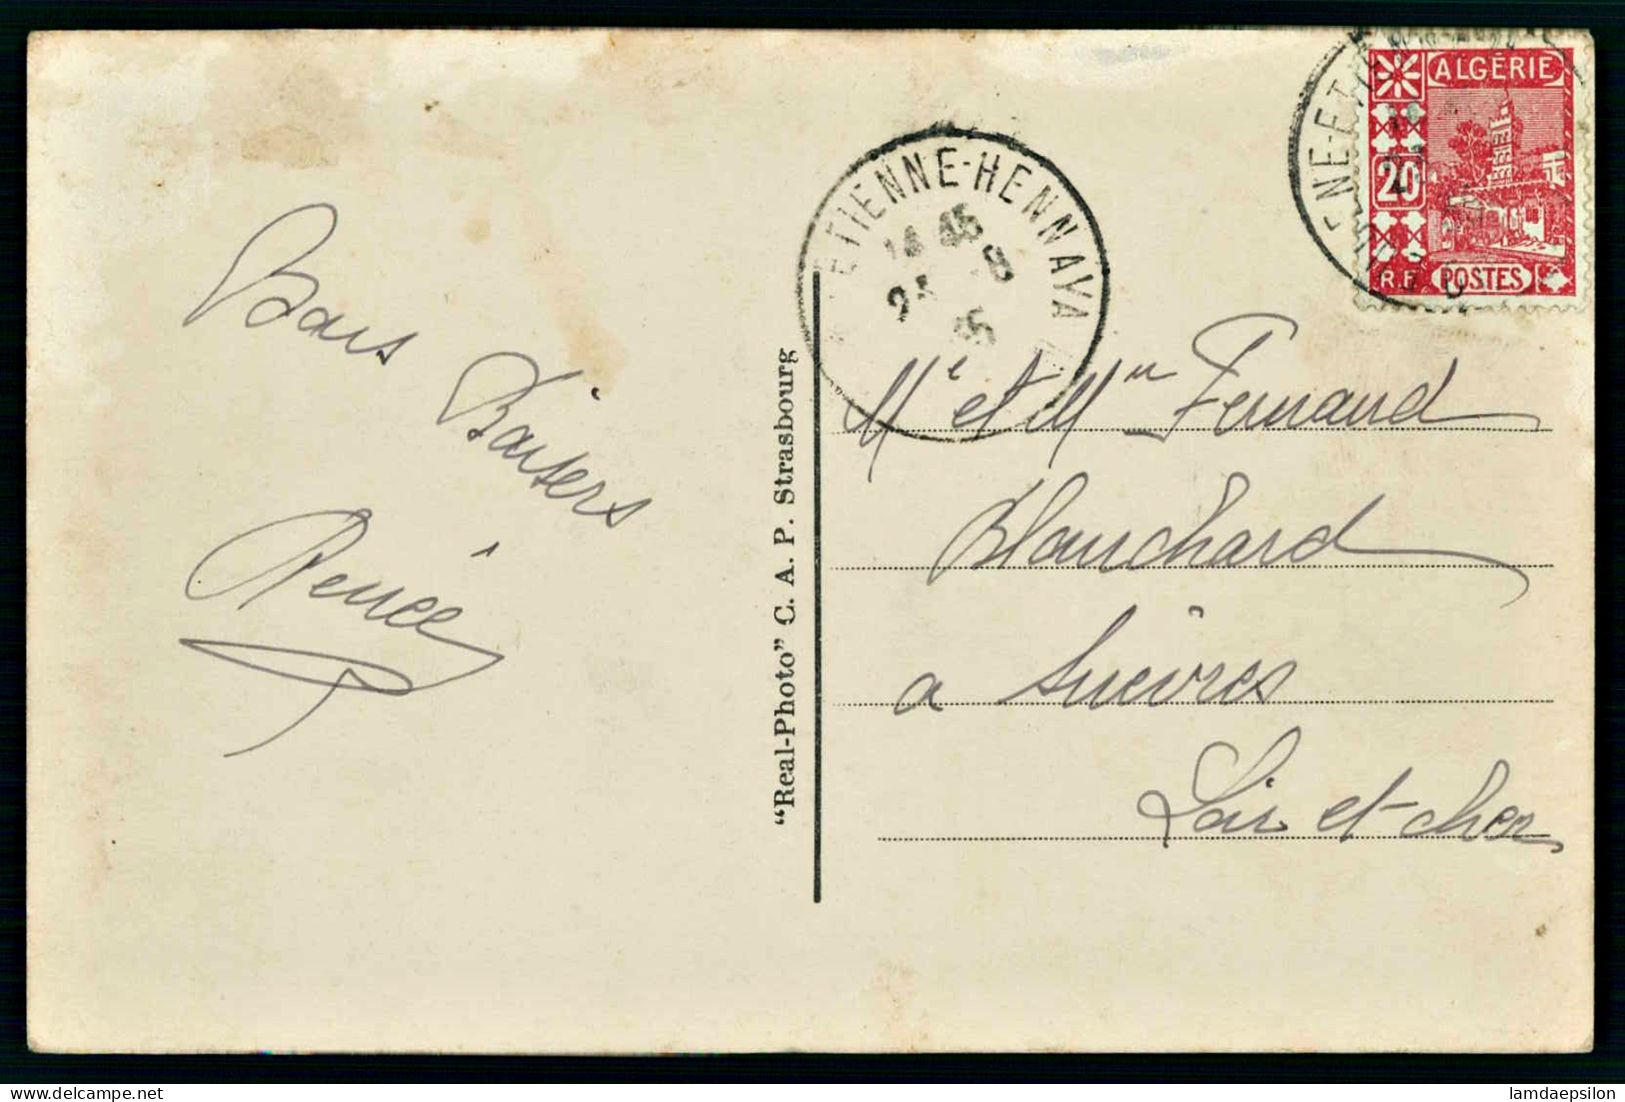 Bons
Baisers
Renée
"Real-Photo" C. A. P. Strasbourg
ETIENNE-HENNAYA
14 45
8
35
ALGÉRIE
20
R.F. POSTES
Mr et Mme Fernand
Blanchard
a Suèvres
Loir et-cher
delcampe.net
lamdaepsilon